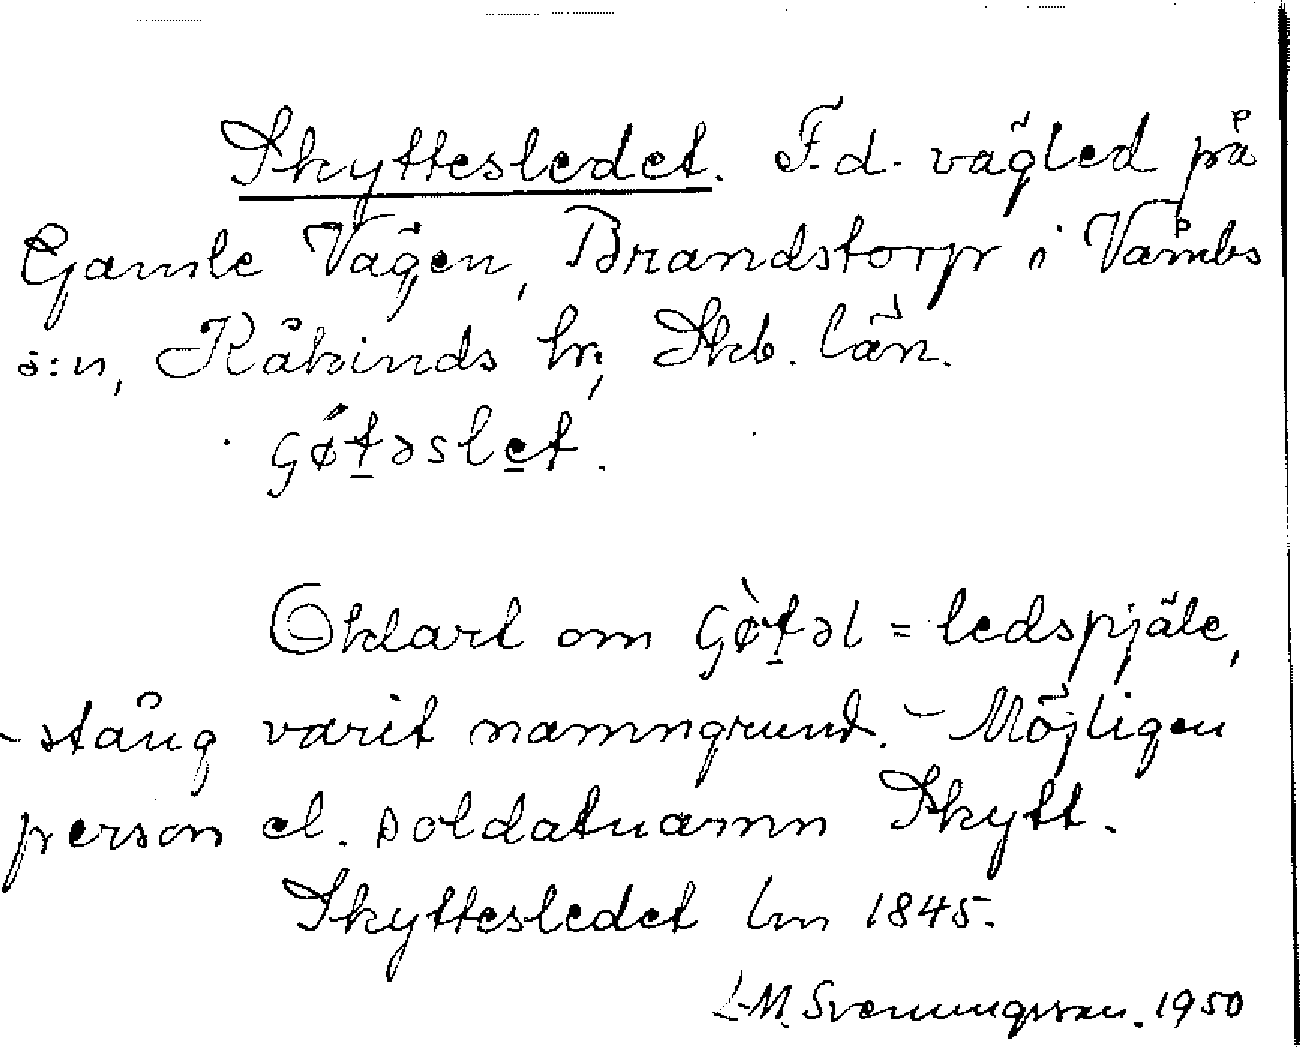 Skyttesledet. F.d. vägled på
Gamle Vägen, Brandstorp i Våmbs
s:n, Kåkinds hr, Skb. län.
çǿtəslet.
Oklart om çø̀təl = ledspjäle,
-stång varit namngrund. - Möjligen
person el. soldatnamn Skytt.
Skyttesledet Lm 1845.
L-M. Svenungsson. 1950